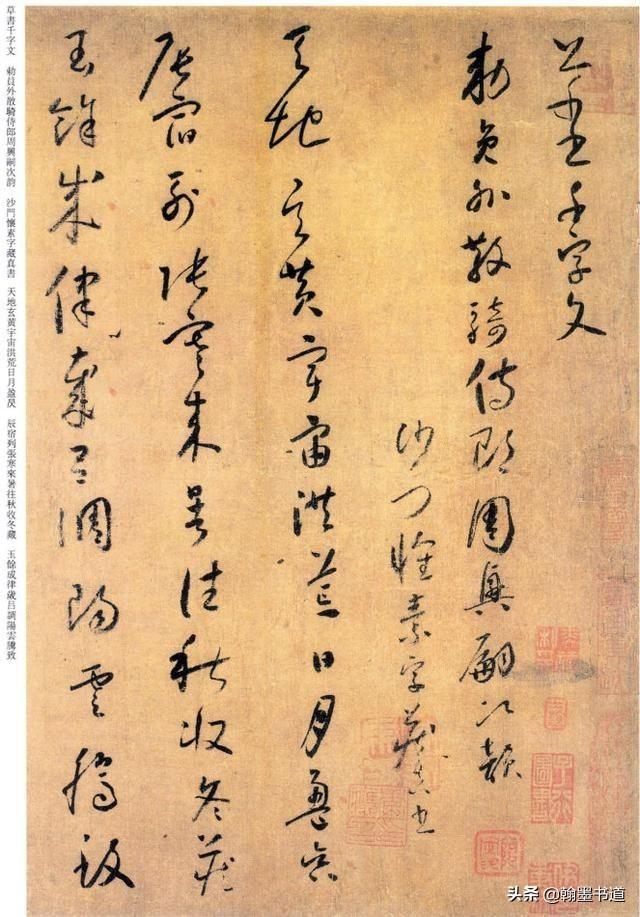 草書千字文
勅員外散騎侍郎周興嗣次韻
沙門懷素字藏真書
天地玄黃宇宙洪荒日月盈昃
辰宿列張寒來暑往秋收冬藏
玉餘成律歲呂調陽雲騰致
草書千字文 勅員外散騎侍郎周興嗣次韵 沙門懷素字藏真書 天地玄黃宇宙洪荒日月盈昃 辰宿列張寒來暑往秋收冬藏 玉餘成律歲呂調陽雲騰致
头条 @翰墨书道